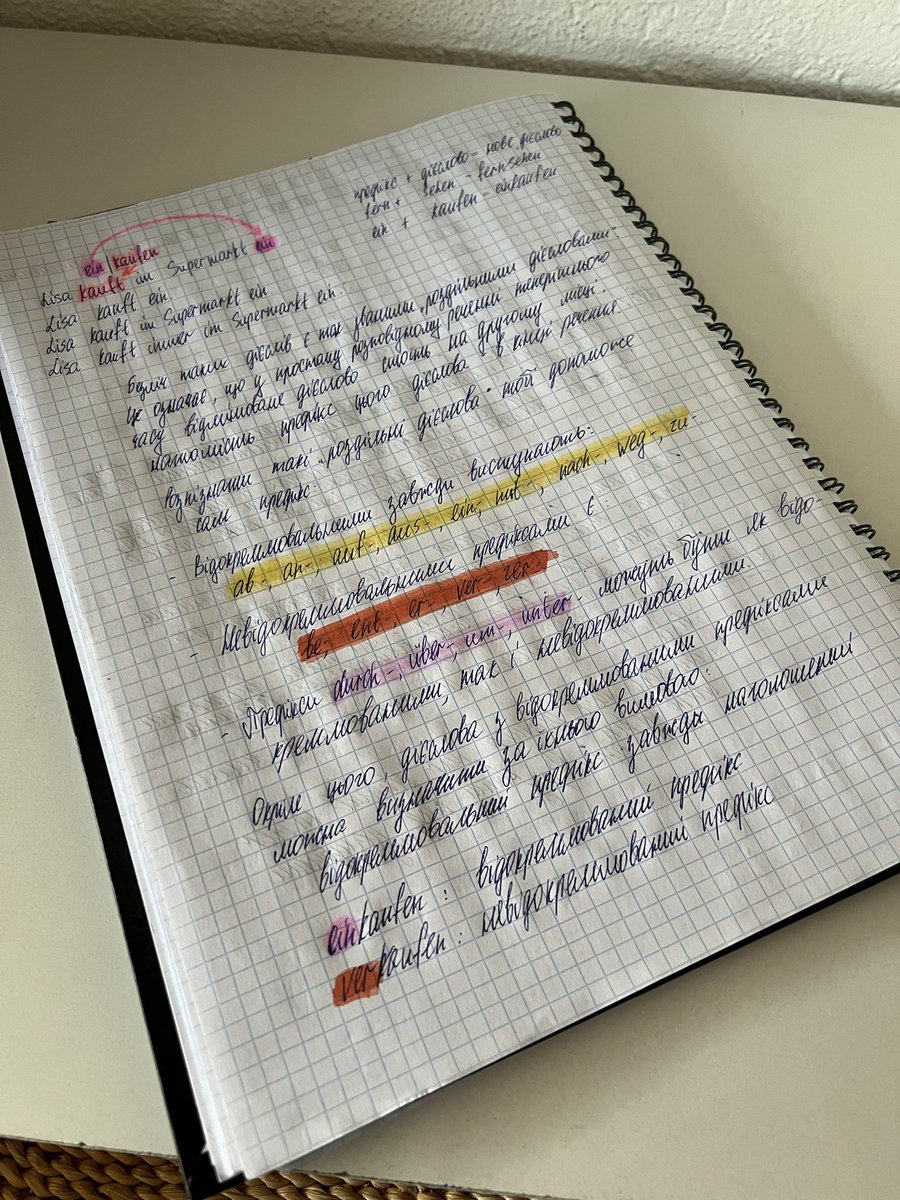 префікс + дієслово = нове дієслово
fern + sehen = fernsehen
ein + kaufen = einkaufen
ein | kaufen
Lisa kauft im Supermarkt ein
Lisa kauft ein.
Lisa kauft im Supermarkt ein.
Lisa kauft immer im Supermarkt ein.
Безліч таких дієслів є так званими „роздільними дієсловами"
Це означає, що у простому розповідному реченні теперішнього
часу відмінюване дієслово стоїть на другому місці,
натомість префікс цього дієслова в кінці речення.
Розпізнати такі „роздільні дієслова" тобі допоможе
сам префікс:
- Відокремлювальними завжди виступають:
ab-, an-, auf-, aus-, ein-, mit-, nach-, weg-, zu-.
- Невідокремлювальними префіксами є:
be-, ent-, er-, ver-, zer-.
- Префікси durch-, über-, um-, unter- можуть бути як відо-
кремлюваними, так і невідокремлюваними.
Окрім цього, дієслова з відокремлюваними префіксами
можна визначити за їхньою вимовою:
відокремлювальний префікс завжди наголошений
einkaufen: відокремлюваний префікс
verkaufen: невідокремлюваний префікс